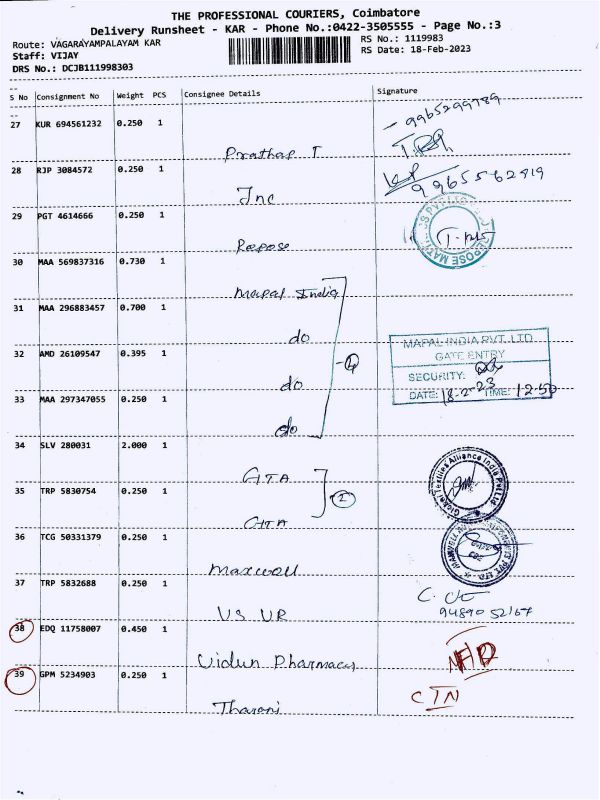 THE PROFESSIONAL COURIERS, Coimbatore
Delivery Runsheet - KAR - Phone No.:0422-3505555 - Page No.:3
Route: VAGARAYAMPALAYAM KAR
RS No.: 1119983
Staff: VIJAY
RS Date: 18-Feb-2023
DRS No.: DCJB111998303
S No Consignment No Weight PCS Consignee Details Signature
27 KUR 694561232 0.250 1
9965299789
Prathap T
28 RJP 3084572 0.250 1
9965562819
Inc
29 PGT 4614666 0.250 1
Repose
REPOSE
30 MAA 569837316 0.730 1
Mapal India
31 MAA 296883457 0.700 1
do
MAPAL INDIA PVT. LTD.
GATE ENTRY
32 AMD 26109547 0.395 1
4
SECURITY:
do
DATE: 18-2-23 TIME: 12.50
33 MAA 297347055 0.250 1
do
34 SLV 280031 2.000 1
GTA
Global Textiles Alliance India Pvt Ltd
35 TRP 5830754 0.250 1
2
GTA
36 TCG 50331379 0.250 1
Maxwell
37 TRP 5832688 0.250 1
VS UR
9489052167
38 EDQ 11758007 0.450 1
Vidun Pharmacy
39 GPM 5234903 0.250 1
CTN
Tharani